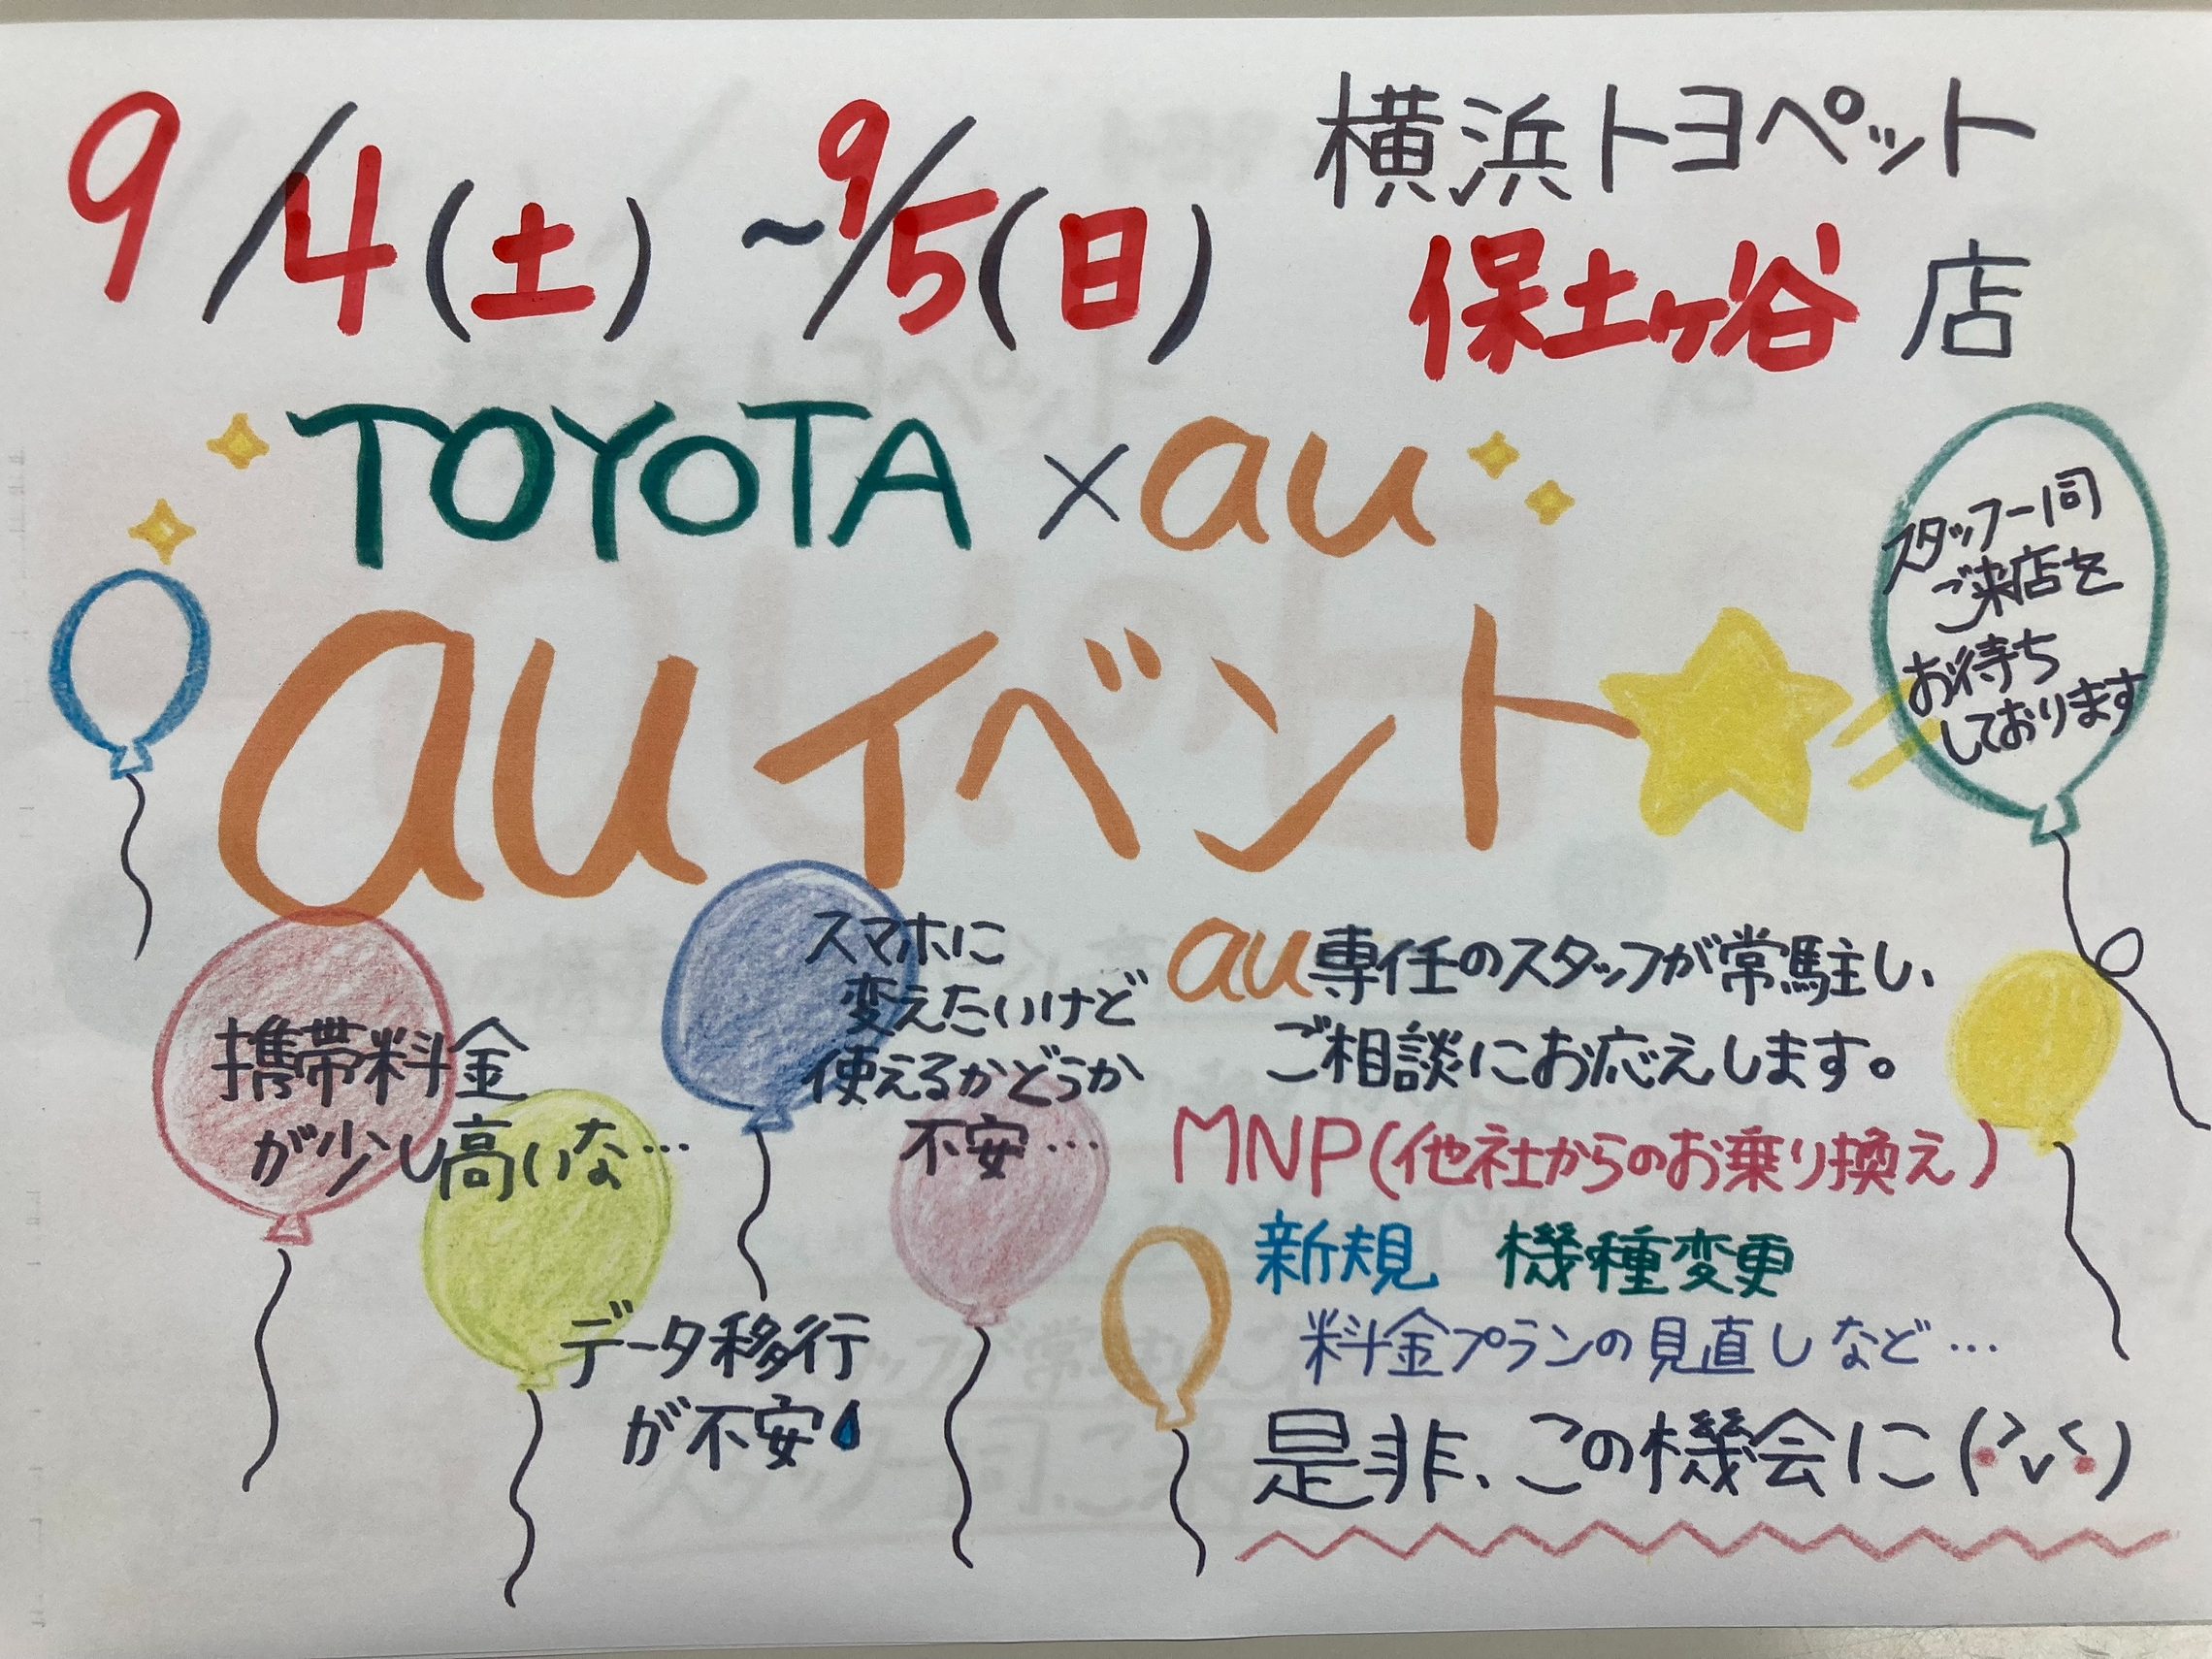 9/4(土)~9/5(日)
横浜トヨペット
保土ヶ谷店
TOYOTA×au
auイベント
スタッフ一同
ご来店を
お待ち
しております
携帯料金
が少し高いな…
スマホに
変えたいけど
使えるかどうか
不安…
データ移行
が不安
au専任のスタッフが常駐し、
ご相談にお応えします。
MNP(他社からのお乗り換え)
新規 機種変更
料金プランの見直しなど…
是非、この機会に